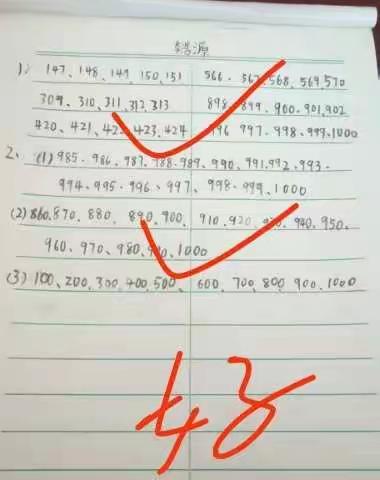 1) 147、148、149、150、151 566、567、568、569、570
309、310、311、312、313 898、899、900、901、902
420、421、422、423、424 996 997、998、999、1000
2、(1) 985、986、987、988、989、990、991、992、993、
994、995、996、997、998、999、1000
(2) 860、870、880、890、900、910、920、930、940、950、
960、970、980、990、1000
(3) 100、200、300、400、500、600、700、800、900、1000
好